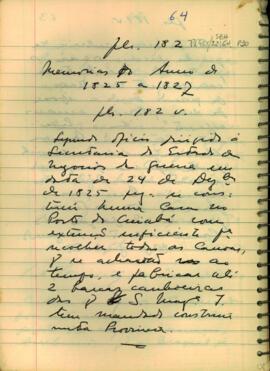 64
fl. 182
Memorias do Anno de
1825 a 1827
fl. 182 v.
Segundo officio dirigido á
Secretaria de Estado de
Negocios da Guerra em
data de 24 de Dezbº
de 1825 pª se cons-
truir huma Casa no
Porto de Cuiabá com
extensão sufficiente pª
recolher todas as Canoas,
q̃ se acharão no
tempo, e fabricar ali
2 barcas canhoneiras
das q̃ S. Magᵉ I.
tem mandado construir
nesta Provincia.